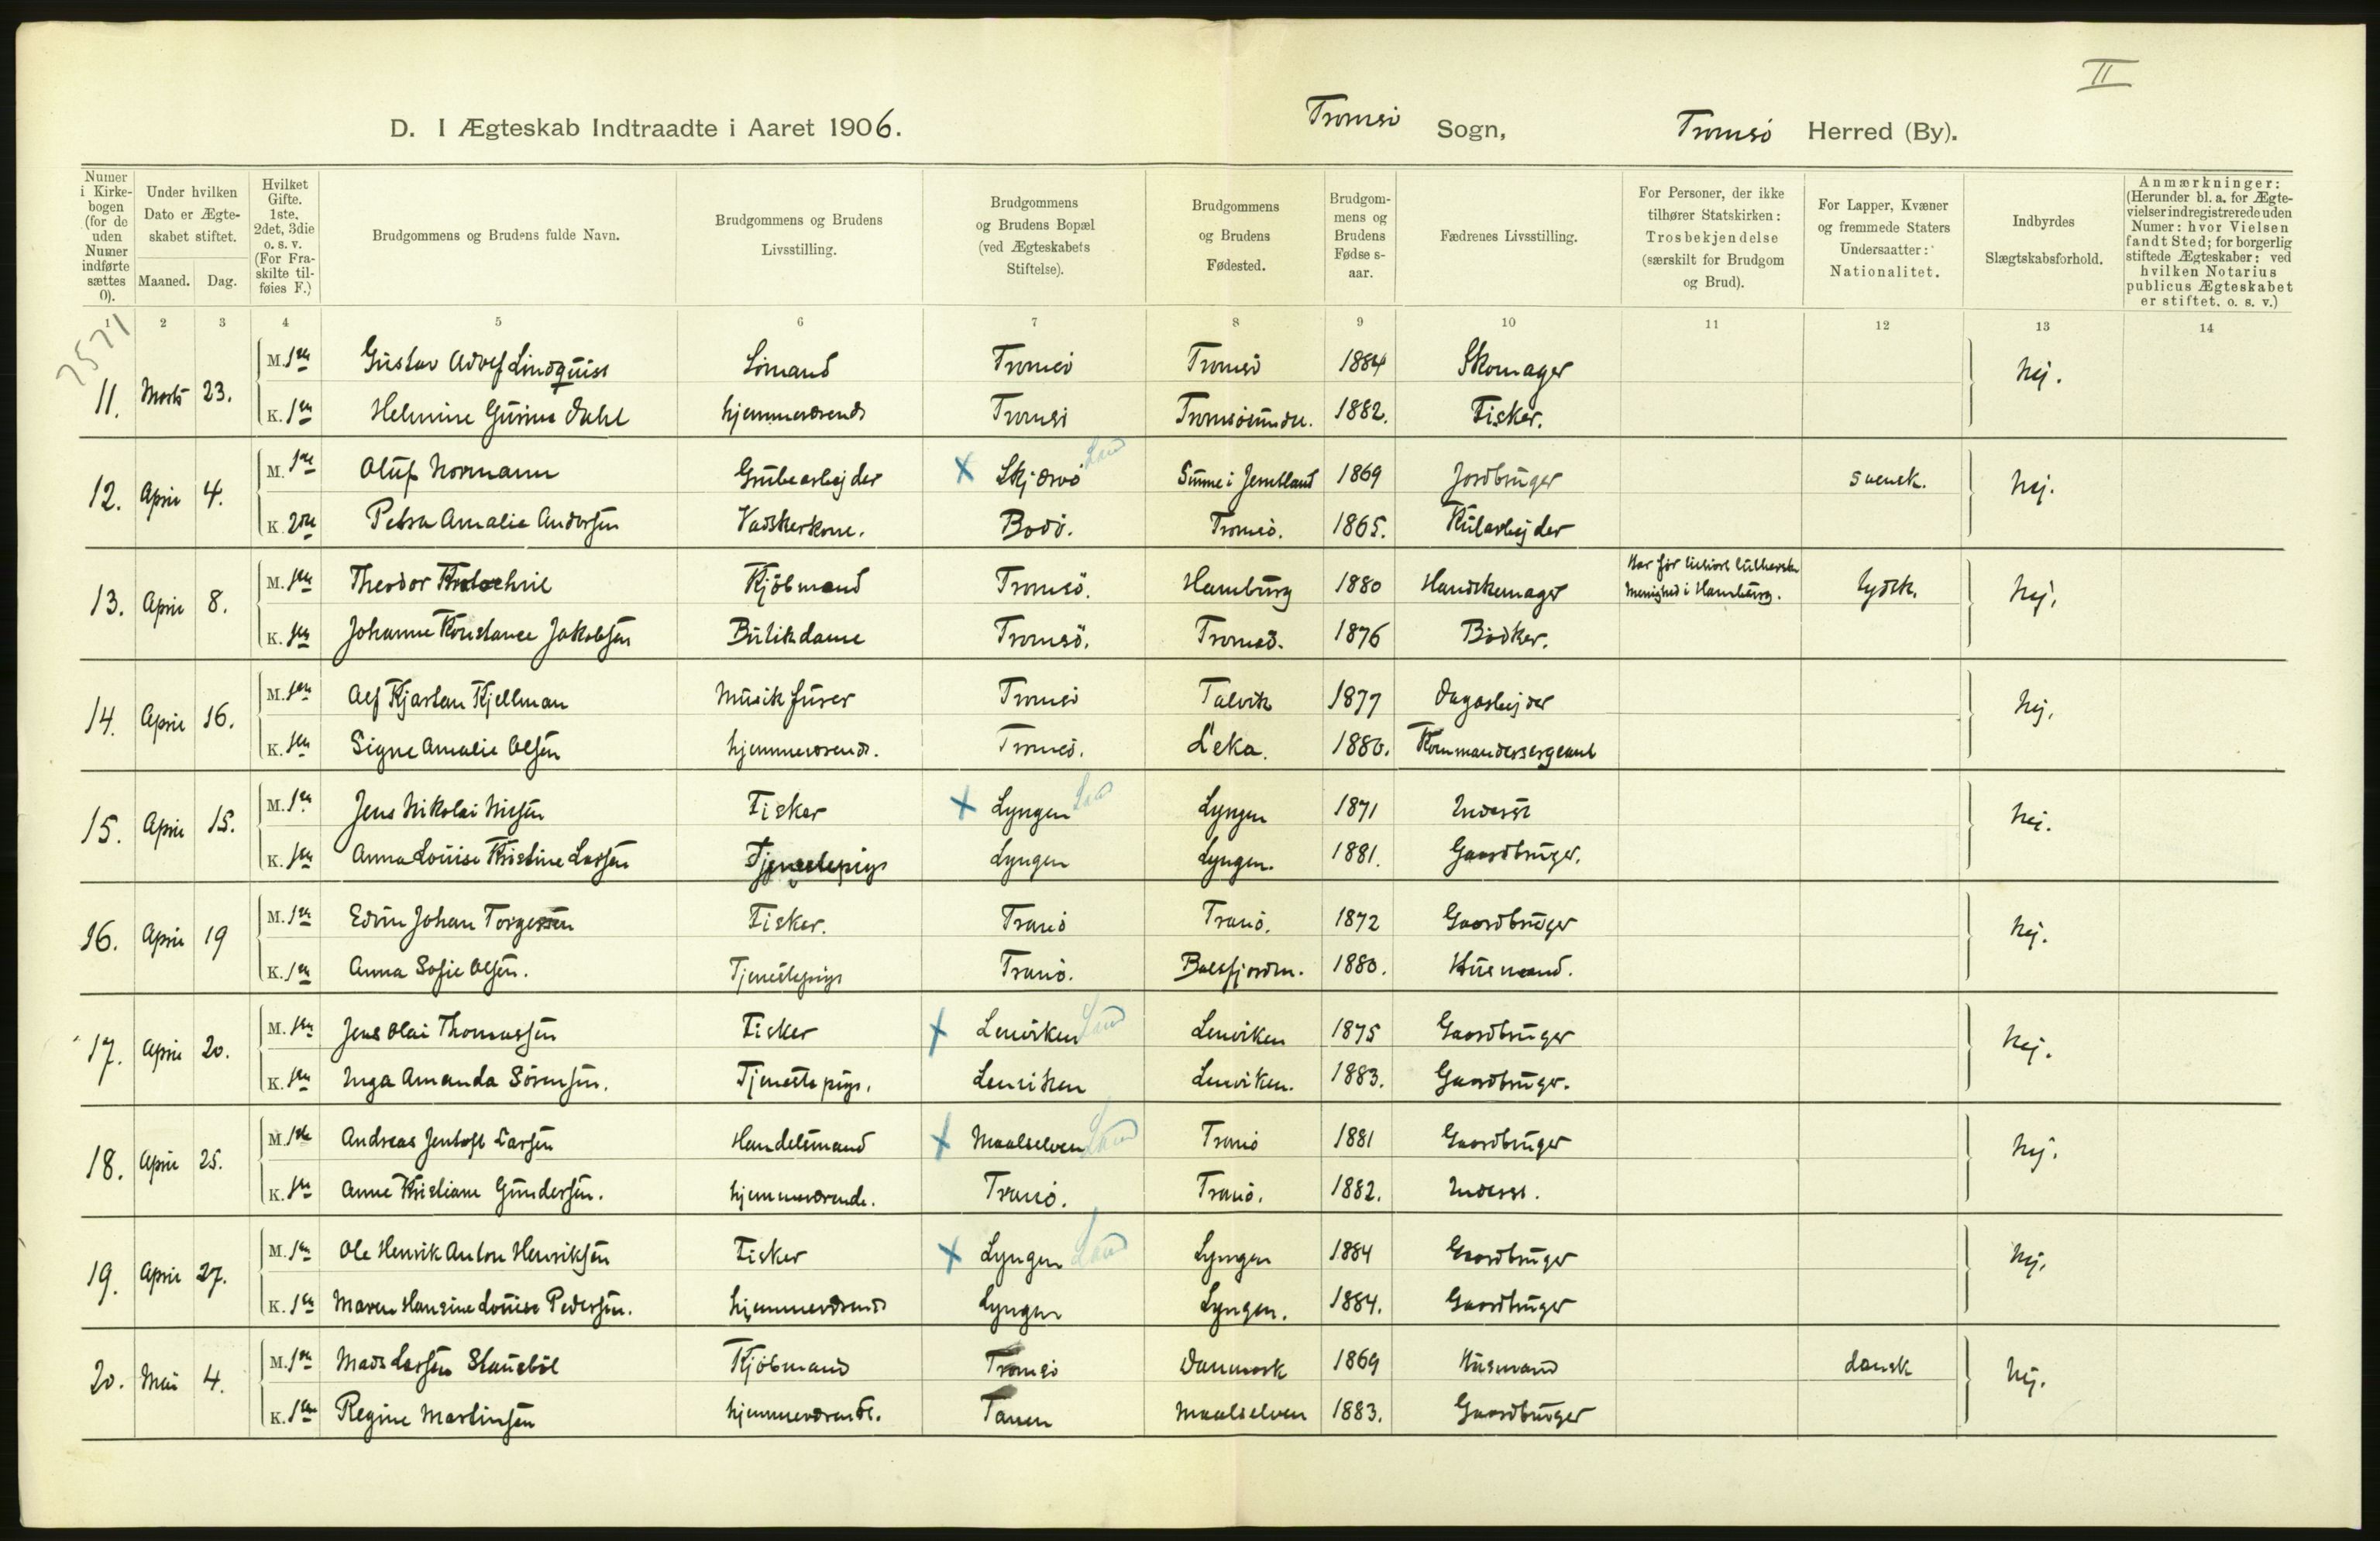 II
D. I Ægteskab Indtraadte i Aaret 1906. Tromsö Sogn, Tromsö Herred (By).
Numer i Kirkebogen (for de uden Numer indførte sættes 0).
Under hvilken Dato er Ægteskabet stiftet. Maaned. Dag.
Hvilket Gifte. 1ste, 2det, 3die o. s. v. (For Fraskilte tilføies F.)
Brudgommens og Brudens fulde Navn.
Brudgommens og Brudens Livsstilling.
Brudgommens og Brudens Bopæl (ved Ægteskabets Stiftelse).
Brudgommens og Brudens Fødested.
Brudgommens og Brudens Fødses-aar.
Fædrenes Livsstilling.
For Personer, der ikke tilhører Statskirken: Trosbekjendelse (særskilt for Brudgom og Brud).
For Lapper, Kvæner og fremmede Staters Undersaatter: Nationalitet.
Indbyrdes Slægtskabsforhold.
Anmærkninger: (Herunder bl. a. for Ægtevielser indregistrerede uden Numer: hvor Vielsen fandt Sted; for borgerlig stiftede Ægteskaber: ved hvilken Notarius publicus Ægteskabet er stiftet. o. s. v.)
1 2 3 4 5 6 7 8 9 10 11 12 13 14
11. Marts 23. M. 1ste Gustav Adolf Lindquist Sömand Tromsö Tromsö 1884 Skomager Nej.
K. 1ste Helmine Gurine Dahl hjemmeværende Tromsö Tromsösundet. 1882. Fisker.
12. April 4. M. 1ste Oluf Normann Grubearbejder X Skjærvö Land Sunne i Jemtland 1869 Jordbruger svensk. Nej.
K. 2det Petra Amalie Andersen Vaskerkone. Bodö. Tromsö. 1865. Kularbejder
13. April 8. M. 1ste Theodor Kjöbmand Tromsö. Hamburg 1880 Handskemager Menighed i Hamburg. tydsk. Nej.
K. 1ste Johanne Konstance Jakobsen Butikdame Tromsö. Tromsö. 1876 Bödker.
14. April 16. M. 1ste Alf Kjartan Kjellman Musikfurer Tromsö Talvik 1877 Dagarbejder Nej.
K. 1ste Signe Amalie Olsen hjemmeværende. Tromsö. Leka. 1880. Kommandersergeant
15. April 15. M. 1ste Jens Nikolai Nilsen Fisker X Lyngen Land Lyngen 1871 Inderst Nej.
K. 1ste Anna Louise Kristine Larsen Tjenestepige Lyngen Lyngen. 1881. Gaardbruger.
16. April 19 M. 1ste Edvin Johan Torgersen Fisker. Tranö Tranö. 1872 Gaardbruger Nej.
K. 1ste Anna Sofie Olsen. Tjenestepige Tranö. Balsfjorden. 1880. Husmand.
17. April 20. M. 1ste Jens Olai Thomassen Fisker X Lenviken Land Lenviken 1875 Gaardbruger Nej.
K. 1ste Inga Amanda Sörensen. Tjenestepige. Lenviken Lenviken. 1883. Gaardbruger.
18. April 25. M. 1ste Andreas Jentoft Larsen Handelsmand X Maalselven Land Tranö 1881 Gaardbruger Nej.
K. 1ste Anne Kristiane Gundersen. hjemmeværende. Tranö. Tranö. 1882. Inderst.
19. April 27. M. 1ste Ole Henrik Anton Henriksen Fisker X Lyngen Land Lyngen 1884 Gaardbruger Nej.
K. 1ste Maren Hansine Louise Pedersen. hjemmeværende Lyngen Lyngen. 1884. Gaardbruger
20. Mai 4. M. 1ste Mads Larsen Kjöbmand Tromsö Danmark 1869 Husmand dansk Nej.
K. 1ste Regine Martinsen hjemmeværende. Tanen Maalselven 1883. Gaardbruger